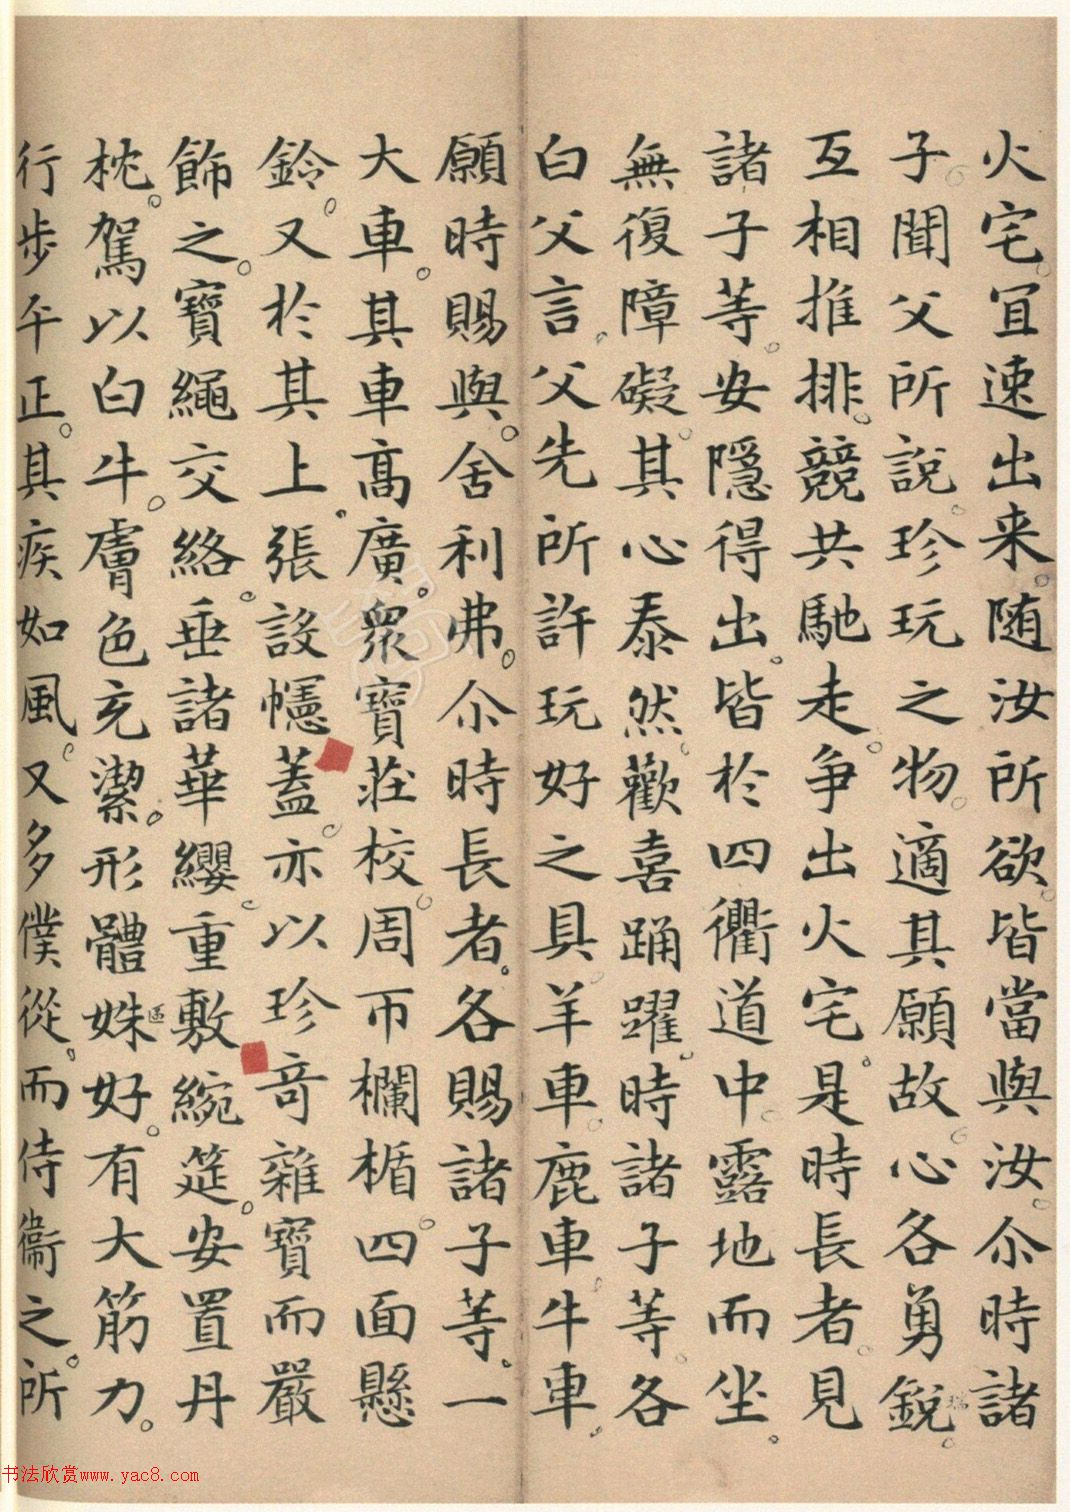 火宅。宜速出来。随汝所欲。皆當與汝。尒時諸
子。聞父所說。珍玩之物。適其願故。心各勇銳。
互相推排。競共馳走。争出火宅。是時長者。見
諸子等。安隱得出。皆於四衢道中。露地而坐。
無復障礙。其心泰然。歡喜踊躍。時諸子等。各
白父言。父先所許玩好之具。羊車。鹿車。牛車。
願時賜與。舍利弗。尒時長者。各賜諸子等。一
大車。其車髙廣。衆寶莊校。周帀欄楯。四面懸
鈴。又於其上。張設幰蓋。亦以珍竒雜寶而嚴
飾之。寶繩交絡。垂諸華纓。重敷綩筵。安置丹
枕。駕以白牛。膚色充潔。形體姝好。有大筋力。
行步平正。其疾如風。又多僕從。而侍衞之。所
书法欣赏www.yac8.com